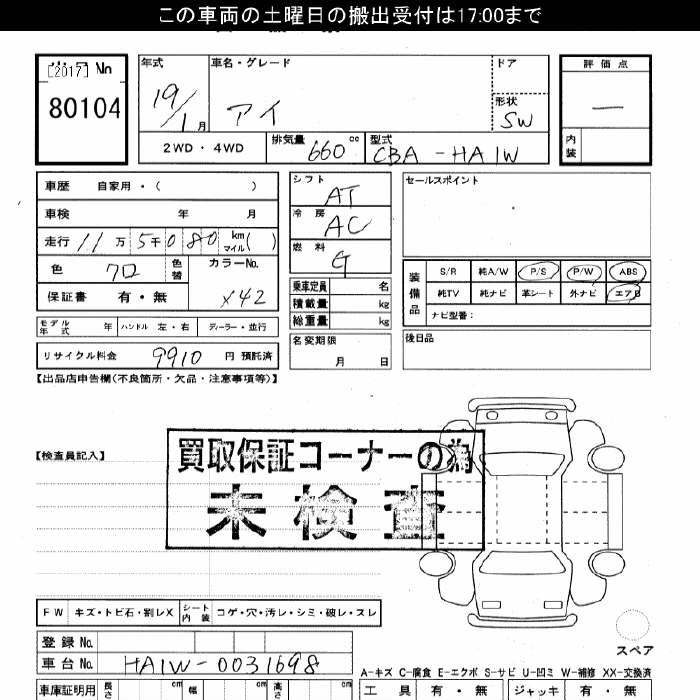 この車両の土曜日の搬出受付は17:00まで
[2017] No
80104
年式
19/1 月
車名・グレード
アイ
ドア
形状
SW
評価点
―
内装
2WD ・ 4WD
排気量 660 cc
型式 CBA - HA1W
車歴 自家用・( )
車検 年 月
走行 11 万 5 千 0 8 0 km マイル ( )
色 クロ 色替
カラーNo. X42
保証書 有・無
モデル年式 年 ハンドル 左・右 ディーラー・並行
リサイクル料金 9910 円 預託済
シフト AT
冷房 AC
燃料 G
乗車定員 名
積載量 kg
総重量 kg
名変期限 月 日
セールスポイント
装備品
S/R 純A/W P/S P/W ABS
純TV 純ナビ 革シート 外ナビ エアB
ナビ型番:
後日品
【出品店申告欄(不良箇所・欠品・注意事項等)】
【検査員記入】
買取保証コーナーの為
未検査
FW キズ・トビ石・割レX シート内装 コゲ・穴・汚レ・シミ・破レ・スレ
スペア
登録No.
車台No. HA1W-0031698
A-キズ C-腐食 E-エクボ S-サビ U-凹ミ W-補修 XX-交換済
車庫証明用 長さ cm 幅 cm 高さ cm
工具 有・無 ジャッキ 有・無